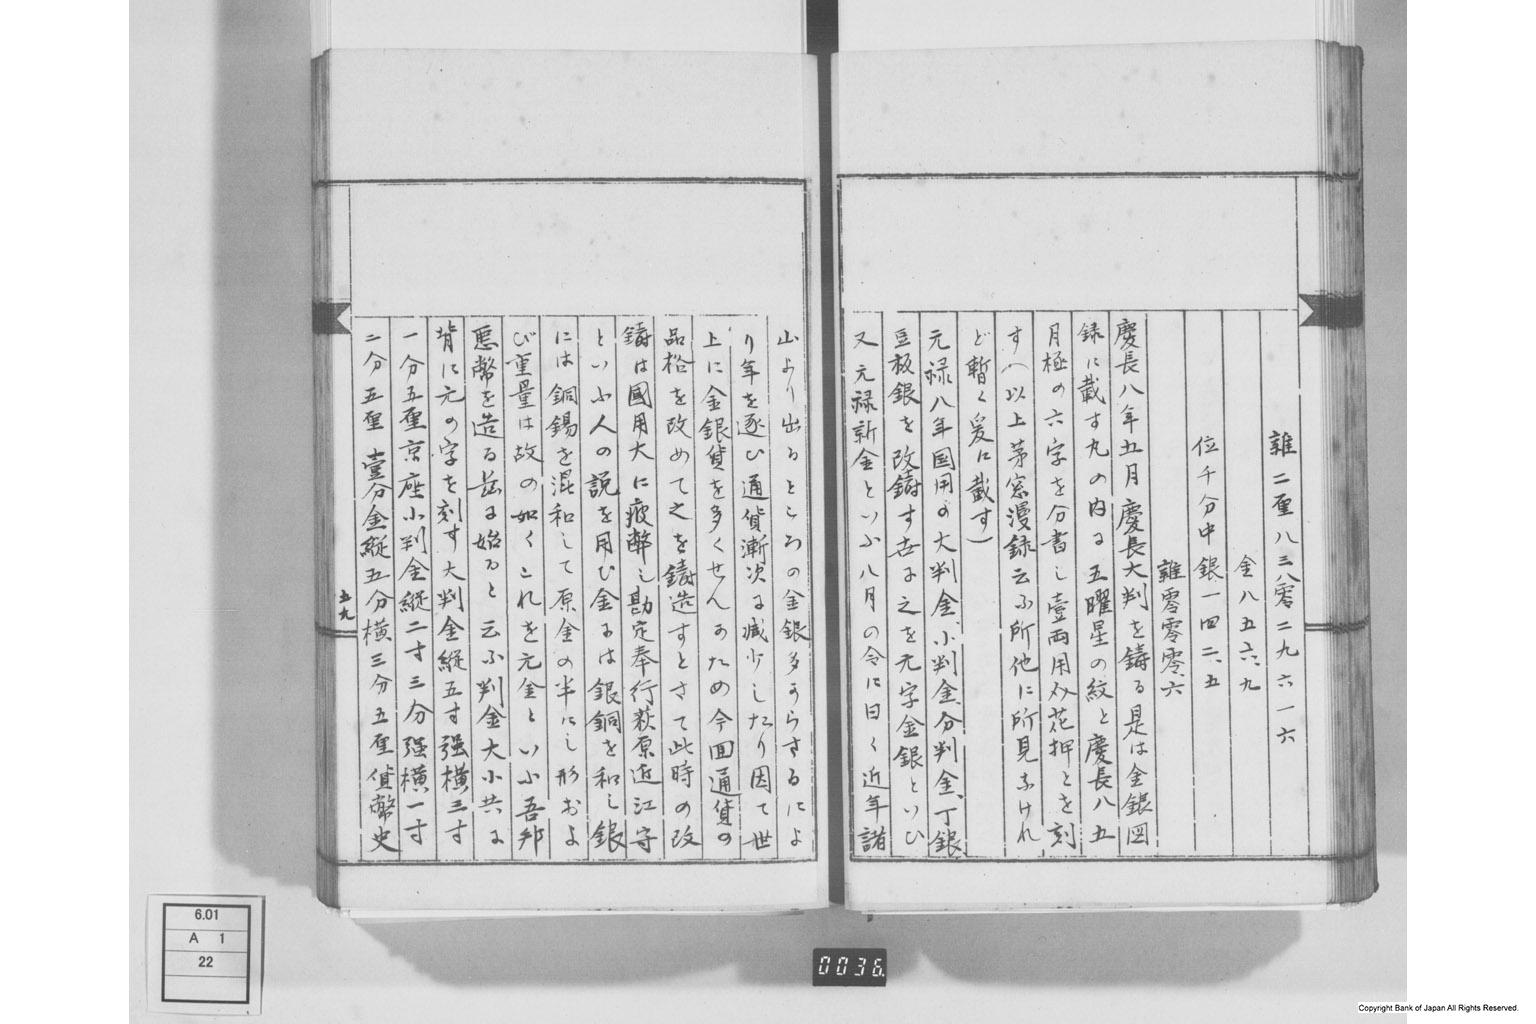 雜二厘八三八零二九六一六
金八五六、九
位千分中銀一四二、五
雜零零零、六
慶長八年五月慶長大判を鑄る是は金銀図
録に載す丸の内に五曜星の紋と慶長八五
月極の六字を分書し壹両用及花押とを刻
す(以上茅窓漫録云ふ所他に所見なけれ
ど暫く爰に載す)
元禄八年国用の大判金、小判金、分判金、丁銀
豆板銀を改鑄す世に之を元字金銀といひ
又元禄新金といふ八月の令に曰く近年諸
山より出るところの金銀多からさるによ
り年を逐ひ通貨漸次に減少したり因て世
上に金銀貨を多くせんのため今回通貨の
品格を改めて之を鑄造すとさて此時の改
鑄は國用大に疲弊し勘定奉行荻原近江守
といふ人の説を用ひ金には銀銅を和し銀
には銅錫を混和して原金の半にし形およ
び重量は故の如くこれを元金といふ吾邦
悪幣を造る茲に始ると云ふ判金大小共に
背に元の字を刻す大判金縦五寸强横三寸
一分五厘京座小判金縦二寸三分强横一寸
二分五厘壹分金縦五分横三分五厘貨幣史
五九
6.01
A 1
22
0036.
Copyright Bank of Japan All Rights Reserved.